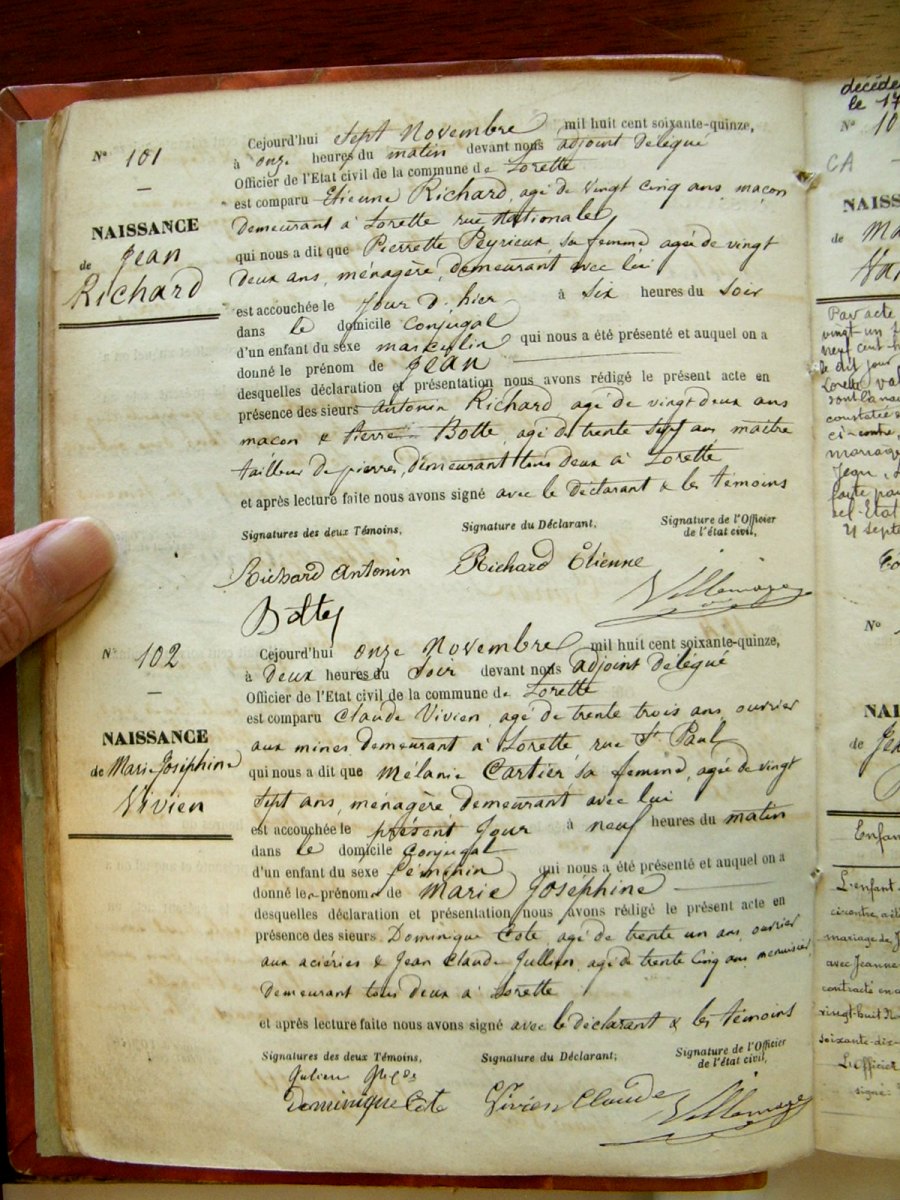 N° 101
—
NAISSANCE
de Jean
Richard
Cejourd'hui sept Novembre mil huit cent soixante-quinze,
à onze heures du matin devant nous adjoint délégué
Officier de l'Etat civil de la commune de Lorette
est comparu Etienne Richard, agé de vingt cinq ans, maçon
demeurant à Lorette rue Nationale
qui nous a dit que Pierrette Peyrieux, sa femme agée de vingt
deux ans, ménagère, demeurant avec lui
est accouchée le jour d'hier à six heures du soir
dans le domicile conjugal
d'un enfant du sexe masculin qui nous a été présenté et auquel on a
donné le prénom de Jean
desquelles déclaration et présentation nous avons rédigé le présent acte en
présence des sieurs Antonin Richard, agé de vingt deux ans
maçon & Pierre Botte, agé de trente sept ans maitre
tailleur de pierres, demeurant tous deux à Lorette
et après lecture faite nous avons signé avec le déclarant & les témoins
Signatures des deux Témoins, Signature du Déclarant, Signature de l'Officier
de l'état civil,
Richard Antonin Richard Etienne
N° 102
—
NAISSANCE
de Marie Joséphine
Vivien
Cejourd'hui onze Novembre mil huit cent soixante-quinze,
à deux heures du soir devant nous adjoint délégué
Officier de l'Etat civil de la commune de Lorette
est comparu Claude Vivien, agé de trente trois ans, ouvrier
aux mines demeurant à Lorette, rue St Paul
qui nous a dit que Mélanie Cartier sa femme, agée de vingt
sept ans, ménagère demeurant avec lui
est accouchée le présent jour à neuf heures du matin
dans le domicile conjugal
d'un enfant du sexe féminin qui nous a été présenté et auquel on a
donné les prénoms de Marie Joséphine
desquelles déclaration et présentation nous avons rédigé le présent acte en
présence des sieurs Dominique Cote, agé de trente un ans, ouvrier
aux aciéries & Jean Claude Jullien, agé de trente cinq ans menuisier,
demeurant tous deux à Lorette
et après lecture faite nous avons signé avec le déclarant & les témoins
Signatures des deux Témoins, Signature du Déclarant, Signature de l'Officier
de l'état civil,
Dominique Cote Vivien Claude
décédé
le 17
N° 10
CA
NAISS
de
Par acte
vingt un
neuf cent
le dit jour
Lorette
constatée
ci-contre,
mariage
N°
NAI
de
Enfan
L'enfant
mariage de
avec Jeanne
contracté en
vingt-huit
soixante-dix-
L'officier
signé: